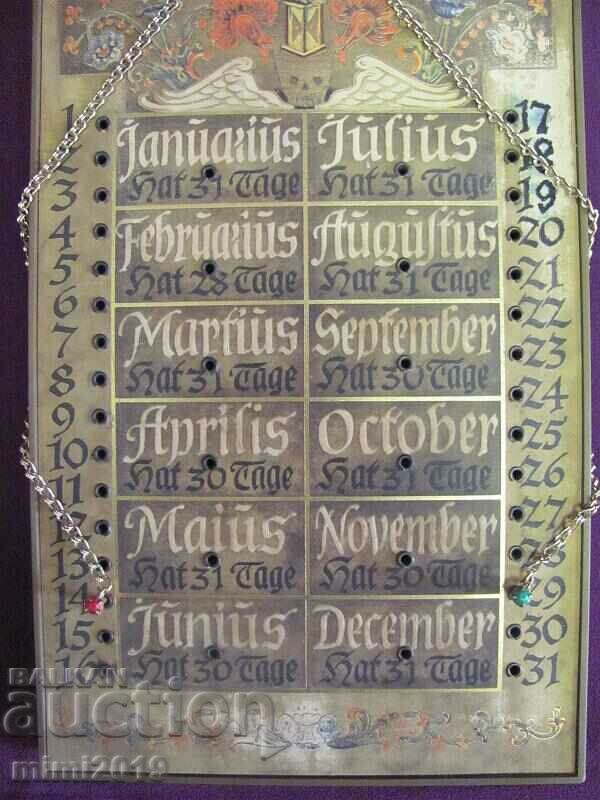 1
2
3
4
5
6
7
8
9
10
11
12
13
14
15
16
Januarius
Hat 31 Tage
Februarius
Hat 28 Tage
Martius
Hat 31 Tage
Aprilis
Hat 30 Tage
Maius
Hat 31 Tage
Junius
Hat 30 Tage
Julius
Hat 31 Tage
Augustus
Hat 31 Tage
September
Hat 30 Tage
October
Hat 31 Tage
November
Hat 30 Tage
December
Hat 31 Tage
17
18
19
20
21
22
23
24
25
26
27
28
29
30
31
BALKAN
auction
mimi2019